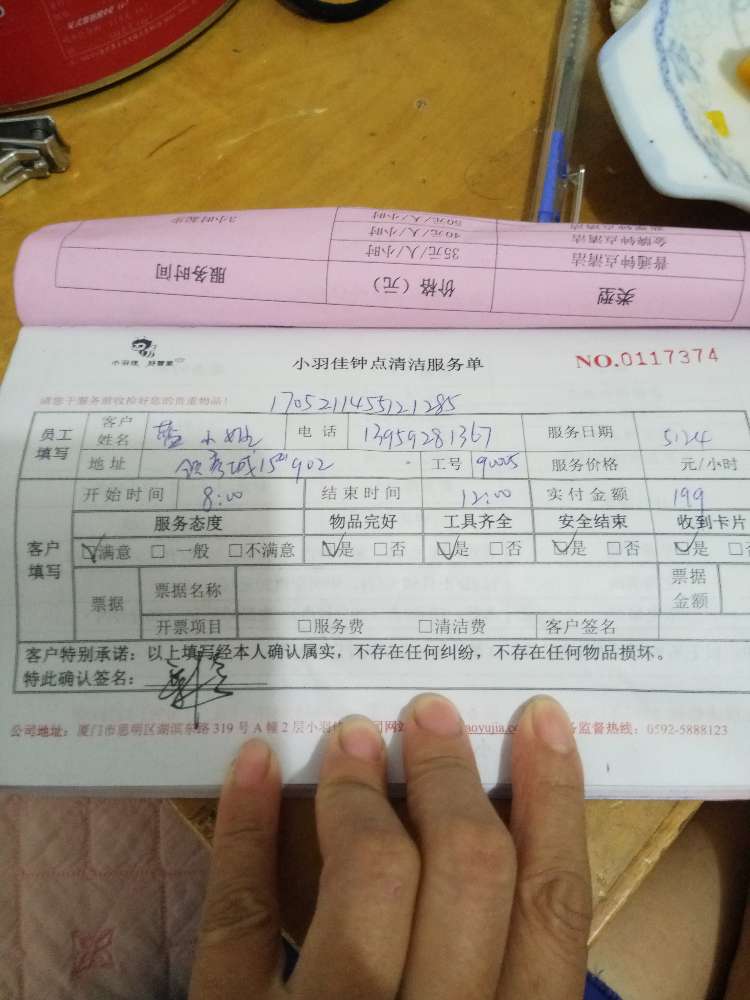 3小时起步 50元/人/小时
40元/人/小时 金牌钟点清洁
35元/人/小时 普通钟点清洁
服务时间 价格（元） 类型
小羽佳 好管家
小羽佳钟点清洁服务单
NO.0117374
请您于服务前收捡好您的贵重物品！
1705211455121285
员工填写 客户姓名 小姐 电话 13959281367 服务日期 5.24
地址 902 工号 9005 服务价格 元/小时
开始时间 8:00 结束时间 12:00 实付金额 199
客户填写 服务态度 物品完好 工具齐全 安全结束 收到卡片
☑满意 □一般 □不满意 ☑是 □否 ☑是 □否 ☑是 □否 ☑是 □
票据 票据名称 票据金额
开票项目 □服务费 □清洁费 客户签名
客户特别承诺：以上填写经本人确认属实，不存在任何纠纷，不存在任何物品损坏。
特此确认签名：
公司地址：厦门市思明区湖滨东路 319 号 A 幢 2 层小羽佳 司网 aoyujia.co 监督热线：0592-5888123